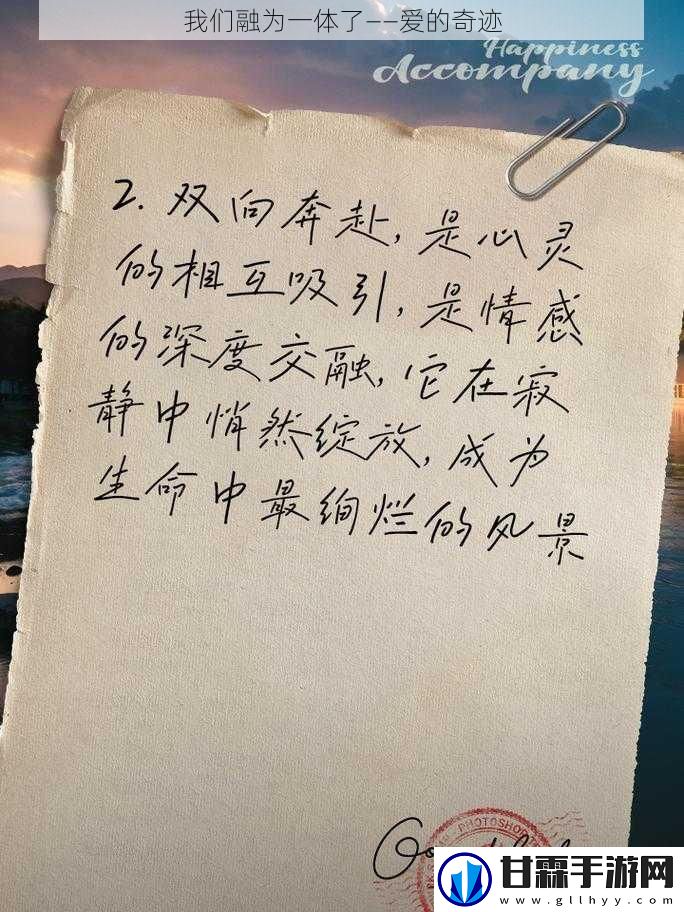 我们融为一体了——爱的奇迹
Happiness
Accompany
2. 双向奔赴，是心灵
的相互吸引，是情感
的深度交融，它在寂
静中悄然绽放，成为
生命中最绚烂的风景
PHOTOSHOP
甘霖手游网
www.gllhyy.com